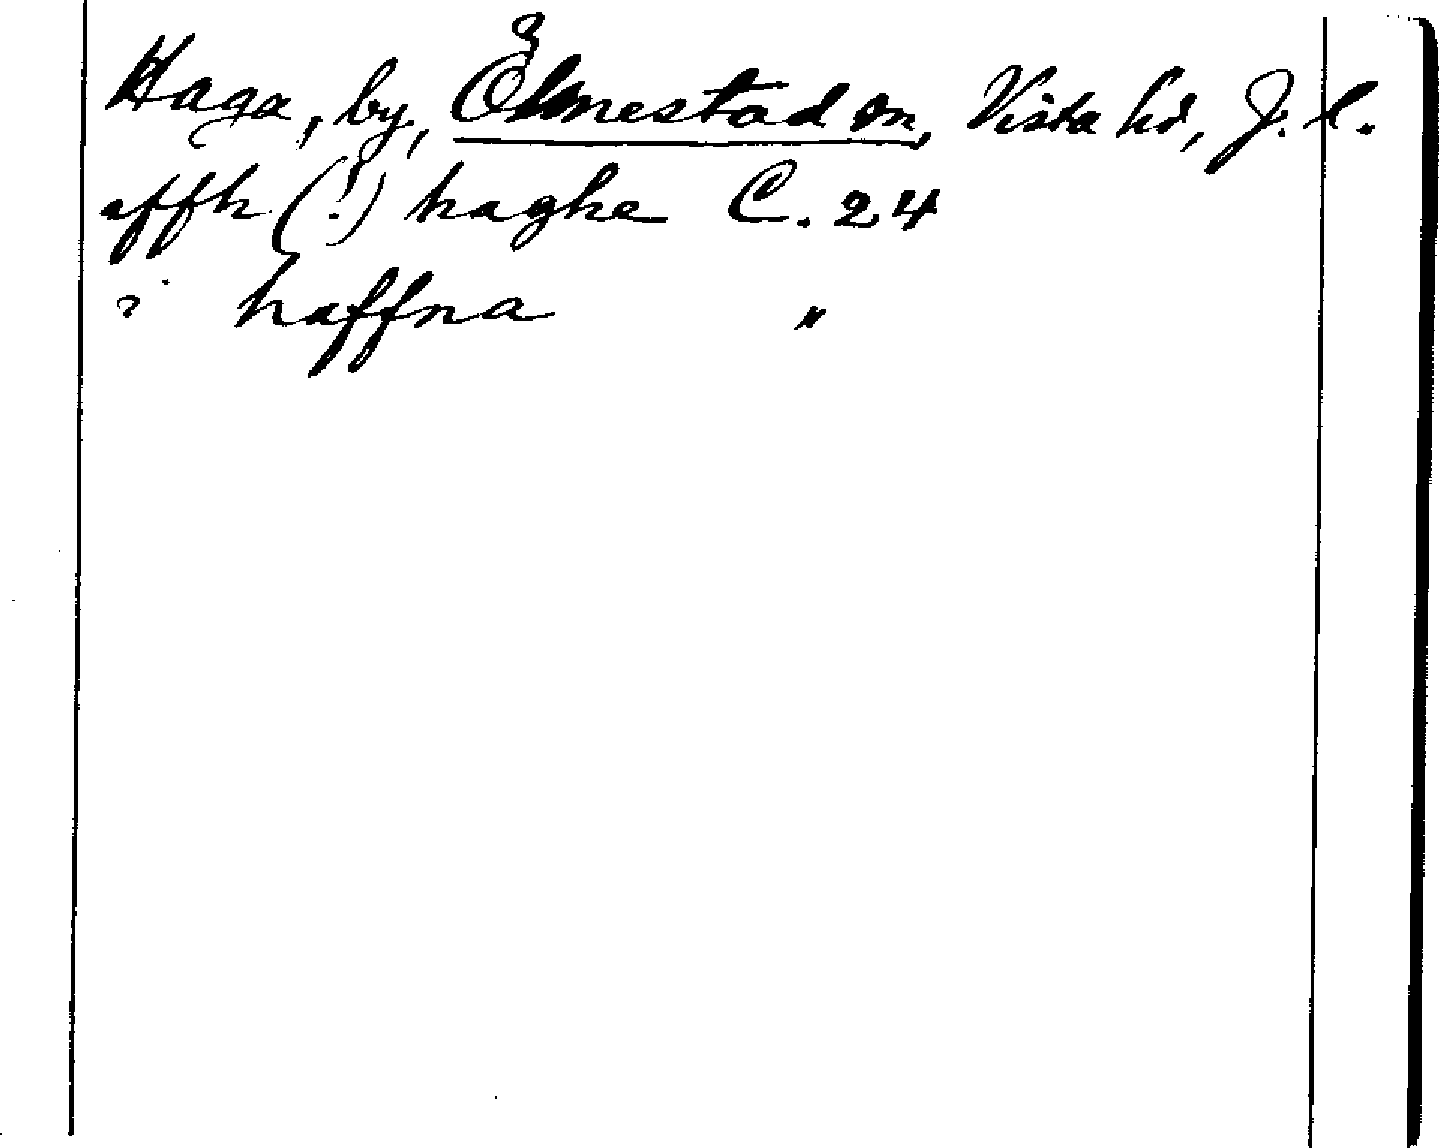 Haga, by, Ölmestad sn, Vista hd, J. l.
affh (!) haghe C. 24
i haffna "